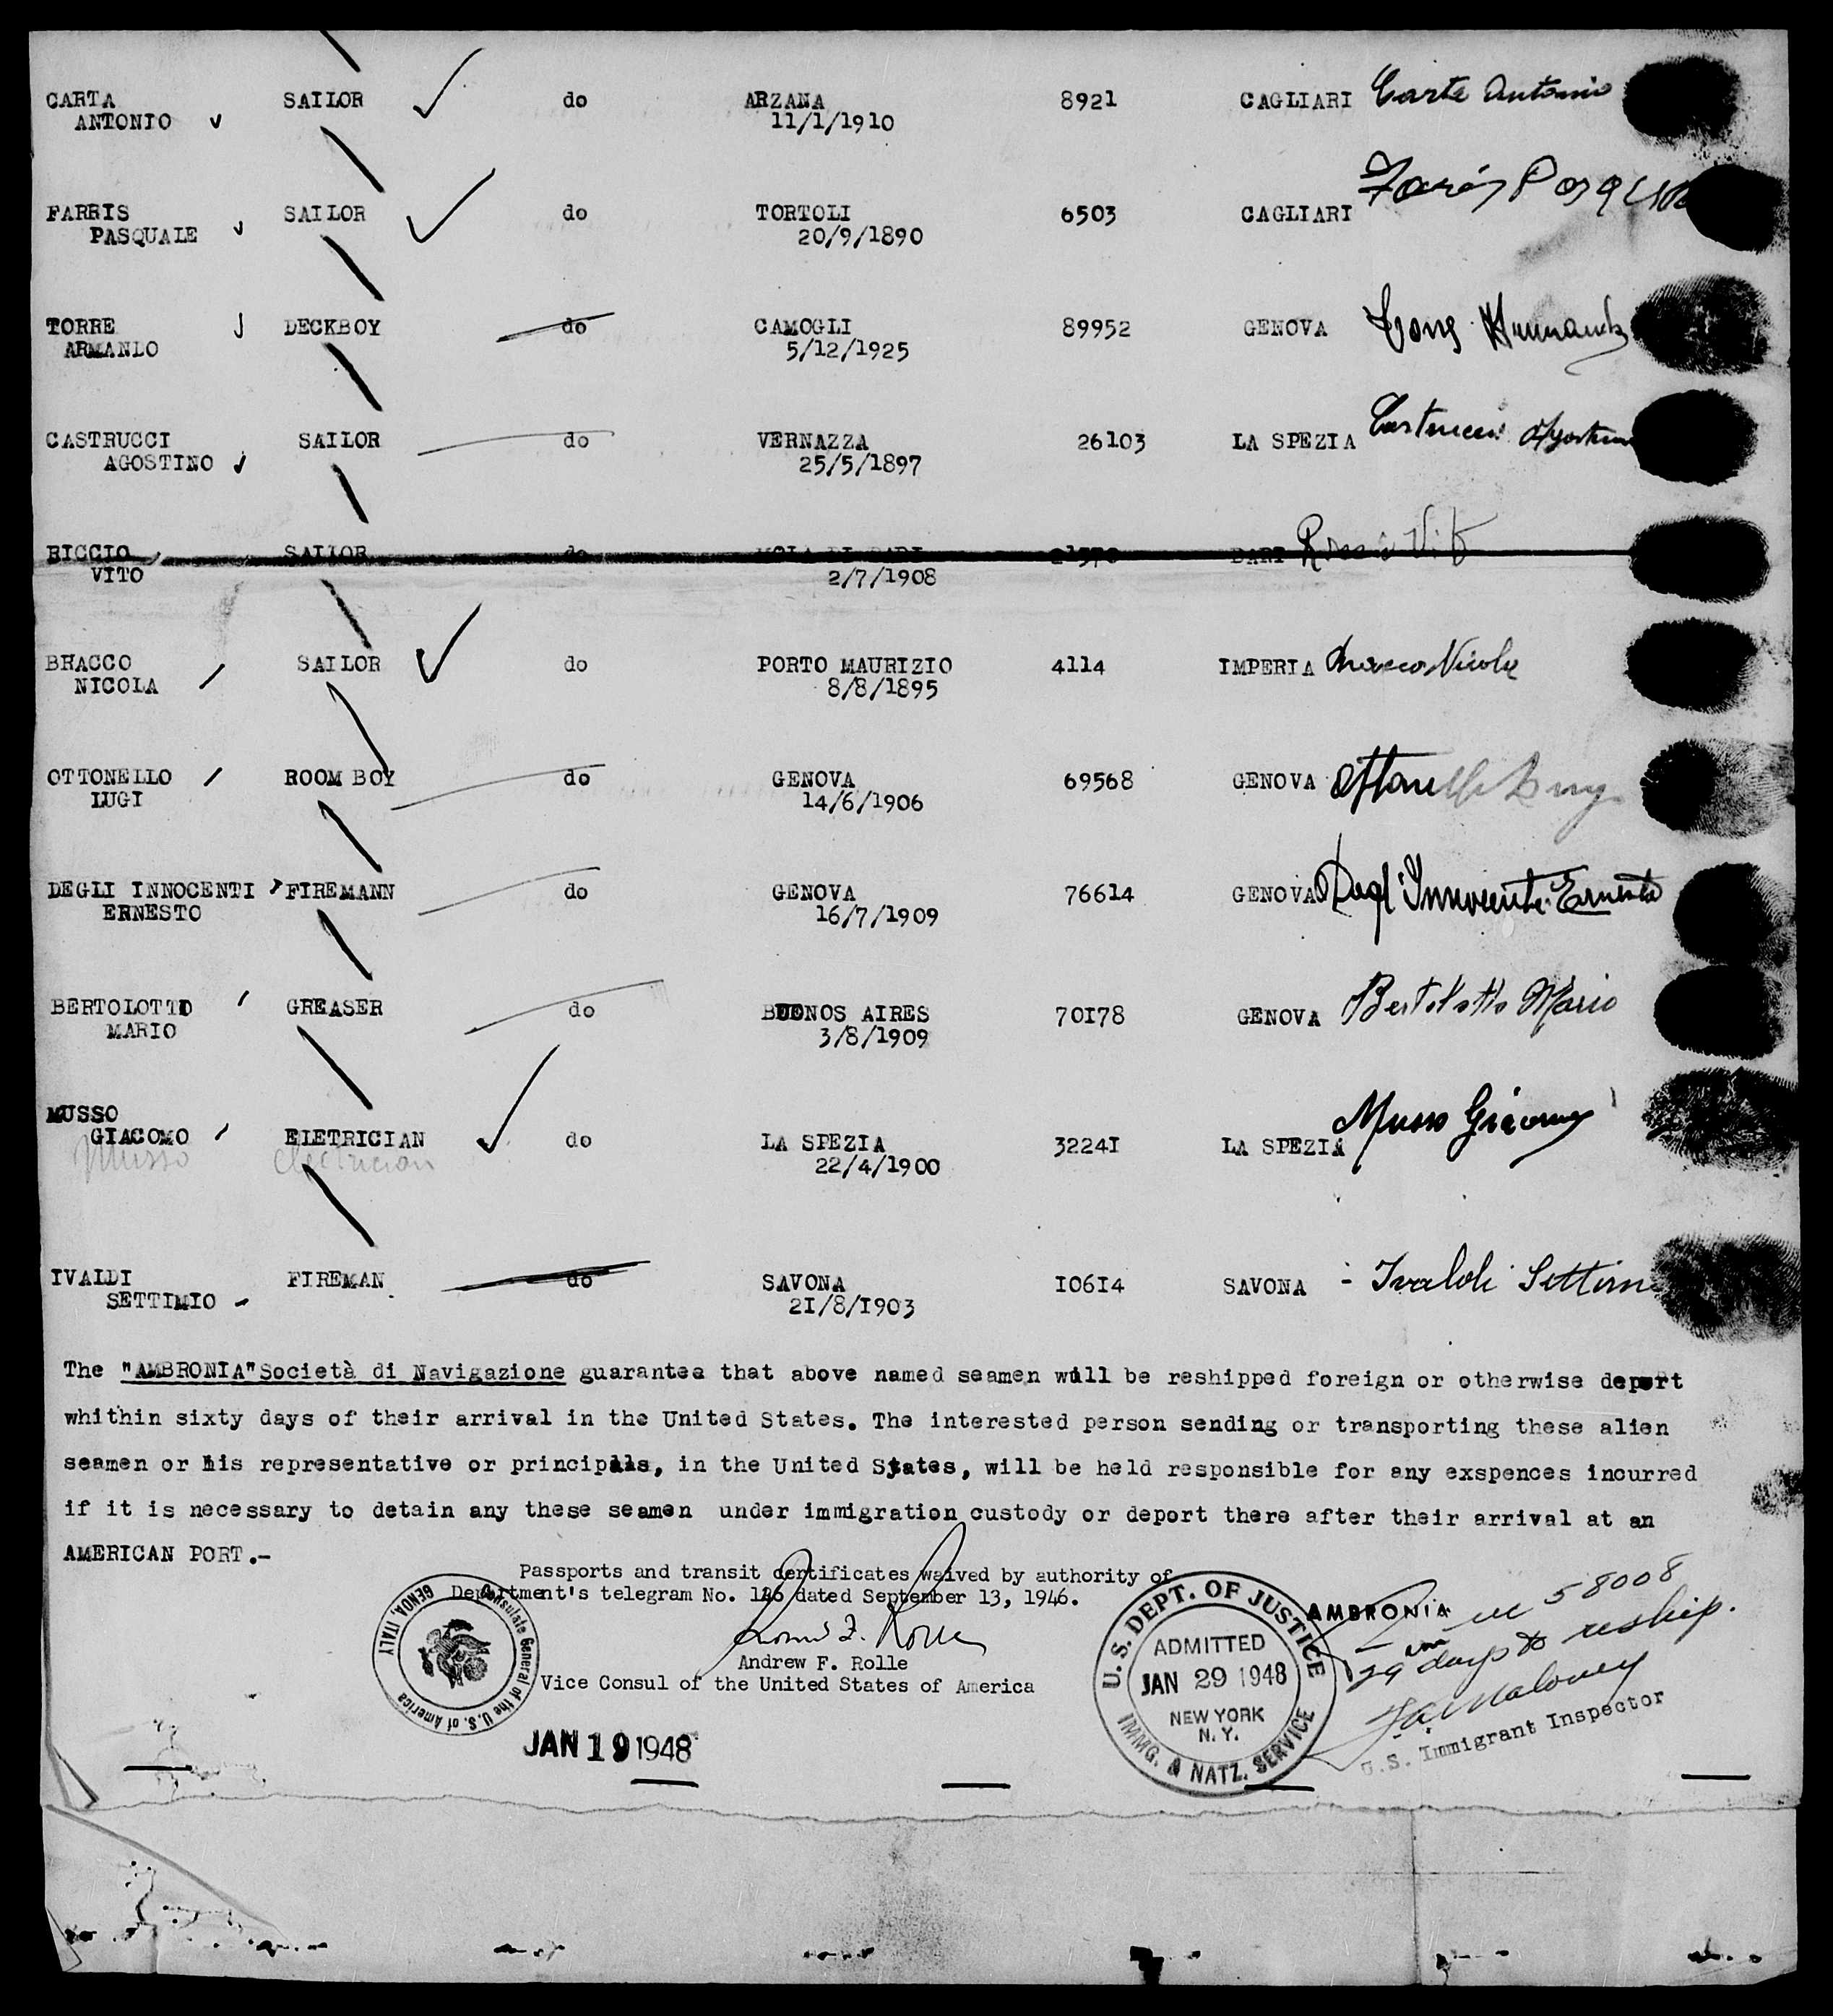 CARTA SAILOR do ARZANA 8921 CAGLIARI Carta Antonio
ANTONIO 11/1/1910
FARRIS SAILOR do TORTOLI 6503 CAGLIARI
PASQUALE 20/9/1890
TORRE DECKBOY do CAMOGLI 89952 GENOVA
ARMANDO 5/12/1925
CASTRUCCI SAILOR do VERNAZZA 26103 LA SPEZIA Castrucci Agostino
AGOSTINO 25/5/1897
RICCIO SAILOR do MOLA DI BARI BARI Riccio Vito
VITO 2/7/1908
BRACCO SAILOR do PORTO MAURIZIO 4114 IMPERIA Bracco Nicola
NICOLA 8/8/1895
OTTONELLO ROOM BOY do GENOVA 69568 GENOVA
LUGI 14/6/1906
DEGLI INNOCENTI FIREMANN do GENOVA 76614 GENOVA Degl'Innocenti Ernesto
ERNESTO 16/7/1909
BERTOLOTTO GREASER do BUENOS AIRES 70178 GENOVA Bertolotto Mario
MARIO 3/8/1909
MUSSO
GIACOMO ELETRICIAN do LA SPEZIA 32241 LA SPEZIA Musso Giacomo
Musso electrician 22/4/1900
IVALDI FIREMAN do SAVONA 10614 SAVONA - Ivaldi Settimo
SETTIMIO 21/8/1903
The "AMBRONIA" Società di Navigazione guarantee that above named seamen will be reshipped foreign or otherwise depart
whithin sixty days of their arrival in the United States. The interested person sending or transporting these alien
seamen or his representative or principals, in the United States, will be held responsible for any exspences incurred
if it is necessary to detain any these seamen under immigration custody or deport there after their arrival at an
AMERICAN PORT.-
Passports and transit certificates waived by authority of
Department's telegram No. 126 dated September 13, 1946.
Andrew F. Rolle
Vice Consul of the United States of America
Consulate General of the U.S. of America
GENOA, ITALY
JAN 19 1948
U.S. DEPT. OF JUSTICE
ADMITTED
JAN 29 1948
NEW YORK
N. Y.
IMMG. & NATZ. SERVICE
AMBRONIA
58008
29 days to reship.
U.S. Immigrant Inspector